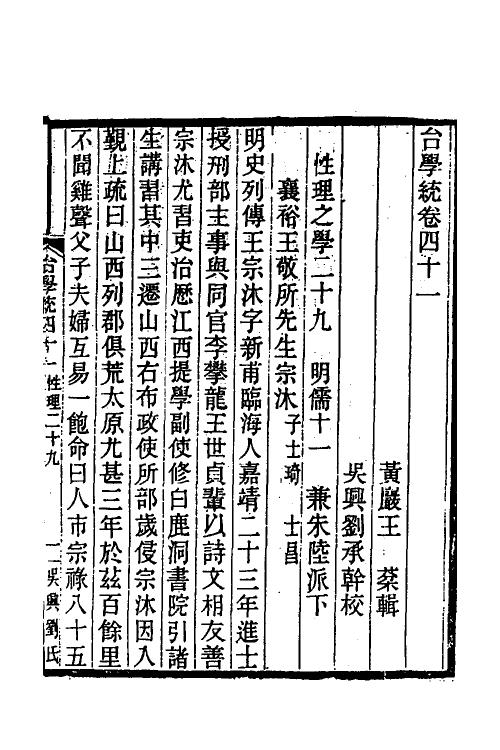 台學統卷四十一
黃巖王　棻輯
吳興劉承幹校
性理之學二十九　明儒十一　兼朱陸派下
襄裕王敬所先生宗沐　子士琦　士昌
明史列傳王宗沐字新甫臨海人嘉靖二十三年進士
授刑部主事與同官李攀龍王世貞輩以詩文相友善
宗沐尤習吏治歷江西提學副使修白鹿洞書院引諸
生講習其中三遷山西右布政使所部歲侵宗沐因入
覲上疏曰山西列郡俱荒太原尤甚三年於茲百餘里
不聞雞聲父子夫婦互易一飽命曰人市宗祿八十五
台學統四十一　性理二十九　一　吳興劉氏